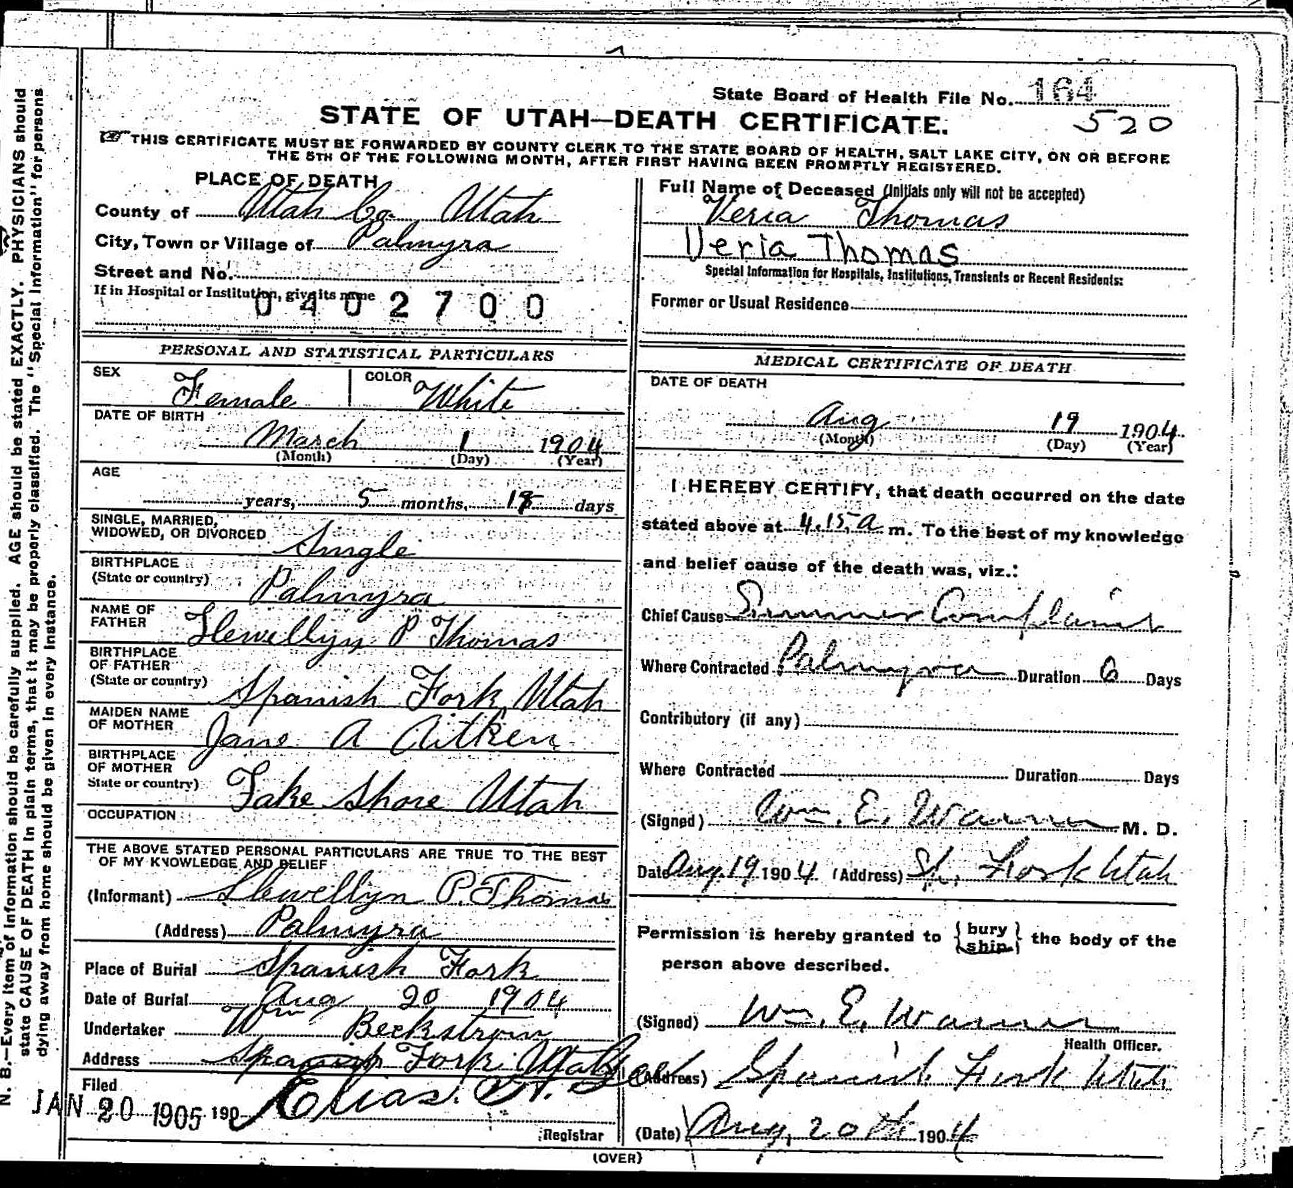 State Board of Health File No. 164
520
STATE OF UTAH—DEATH CERTIFICATE.
THIS CERTIFICATE MUST BE FORWARDED BY COUNTY CLERK TO THE STATE BOARD OF HEALTH, SALT LAKE CITY, ON OR BEFORE
THE 5TH OF THE FOLLOWING MONTH, AFTER FIRST HAVING BEEN PROMPTLY REGISTERED.
PLACE OF DEATH
County of Utah Co, Utah
City, Town or Village of Palmyra
Street and No.
If in Hospital or Institution, give its name
0402700
Full Name of Deceased (Initials only will not be accepted)
Veria Thomas
Veria Thomas
Special Information for Hospitals, Institutions, Transients or Recent Residents:
Former or Usual Residence
PERSONAL AND STATISTICAL PARTICULARS
SEX Female COLOR White
DATE OF BIRTH
March 1 1904
(Month) (Day) (Year)
AGE
years, 5 months, 18 days
SINGLE, MARRIED,
WIDOWED, OR DIVORCED Single
BIRTHPLACE
(State or country) Palmyra
NAME OF
FATHER Llewellyn P Thomas
BIRTHPLACE
OF FATHER
(State or country) Spanish Fork, Utah
MAIDEN NAME
OF MOTHER Jane A Aitken
BIRTHPLACE
OF MOTHER
State or country) Lake Shore Utah
OCCUPATION
THE ABOVE STATED PERSONAL PARTICULARS ARE TRUE TO THE BEST
OF MY KNOWLEDGE AND BELIEF
(Informant) Llewellyn P. Thomas
(Address) Palmyra
Place of Burial Spanish Fork
Date of Burial Aug 20 1904
Undertaker Wm Beckstrom
Address Spanish Fork Utah
Filed
JAN 20 1905 190 Elias
Registrar
MEDICAL CERTIFICATE OF DEATH
DATE OF DEATH
Aug 19 1904
(Month) (Day) (Year)
I HEREBY CERTIFY, that death occurred on the date
stated above at 4.15 a m. To the best of my knowledge
and belief cause of the death was, viz.:
Chief Cause Summer Complaint
Where Contracted Palmyra Duration 6 Days
Contributory (if any)
Where Contracted Duration Days
(Signed) Wm. E. Warner M. D.
Date Aug. 19 1904 (Address) Sp. Fork Utah
Permission is hereby granted to {bury
ship} the body of the
person above described.
(Signed) Wm. E. Warner
Health Officer.
(Address) Spanish Fork Utah
(Date) Aug, 20th 1904
(OVER)
N. B.—Every item of information should be carefully supplied. AGE should be stated EXACTLY. PHYSICIANS should
state CAUSE OF DEATH in plain terms, that it may be properly classified. The "Special Information" for persons
dying away from home should be given in every instance.